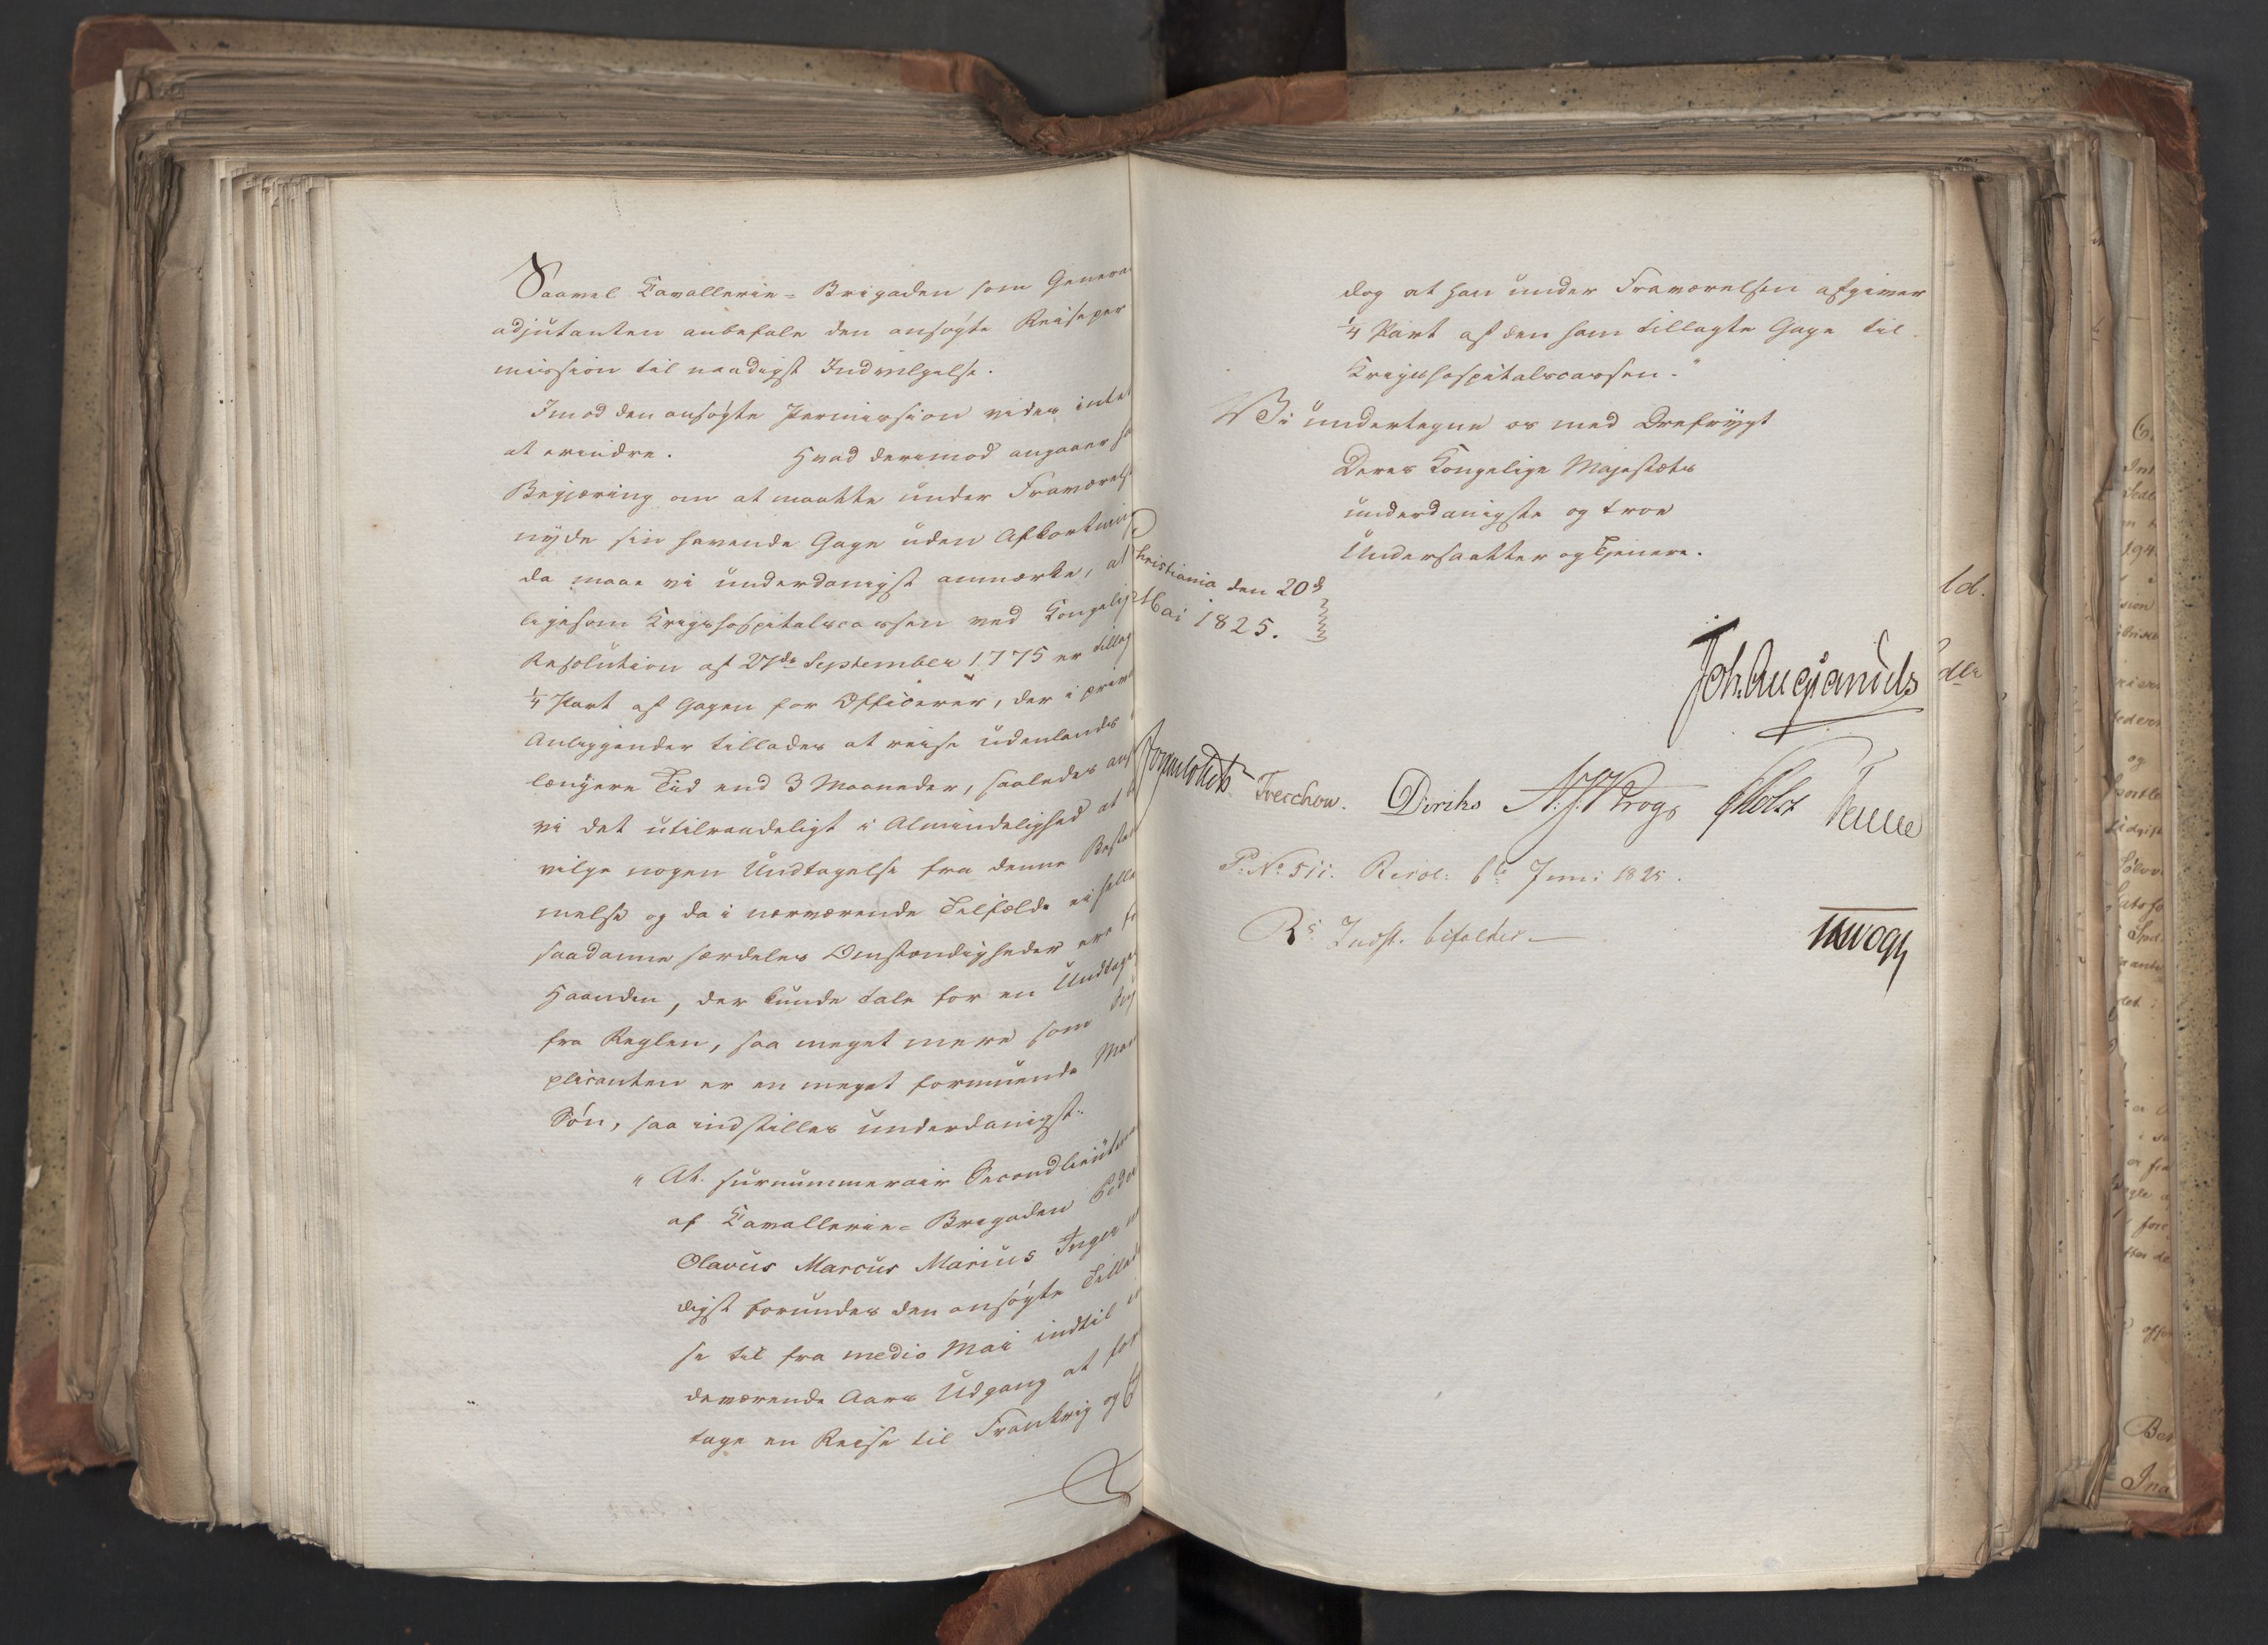 Saavel Cavallerie-Brigaden som General
adjutanten anbefale den ansøgte Reiseper
mission til naadigst Indvilgelse.
Imod den ansøgte Permission vides intet
at erindre. Hvad derimod angaaer
Begjæring om at maatte under Fraværelse
nyde sin havende Gage uden Afkortning
da maae vi underdanigst anmærke, at
ligesom Krigshospitalscassen ved Kongelig
Resolution af 27de September 1775 er tillagt
1/4 Part af Gagen for Officerer, der i private
Anliggender tillades at reise udenlands
længere Tid end 3 Maaneder, saaledes ansee
vi det utilraadeligt i Almindelighed at
vilge nogen Undtagelse fra denne Bestem
melse og da i nærværende Tilfælde ei heller
saadanne særdeles Omstændigheder ere for
Haanden, der kunde tale for en Undtagelse
fra Reglen, saa meget mere som Sup
plicanten er en meget formuende Mands
Søn, saa indstilles underdanigst:
"At surnummerair Secondlieutenant
af Cavallerie-Brigaden Peder
Olavus Marcus Marius Inger
digst forundes den ansøgte Tilladel
se til fra medio Mai indtil
deværende Aars Udgang at fore
tage en Reise til Frankrig og
dog at han under Fraværelsen afgiver
1/4 Part af den ham tillagte Gage til
Krigshospitalscassen."
Vi undertegne os med Ærefrygt
Deres Kongelige Majestæts
underdanigste og troe
Undersaatter og Tjenere.
Christiania den 20de
Mai 1825.
Joh. Aug: Sandels
Sommerhielm Treschow. Diriks N.J. Krogs PHolst Fasting
P: No 511. Resol: 6te Juni 1825.
Rs Indst. bifaldes